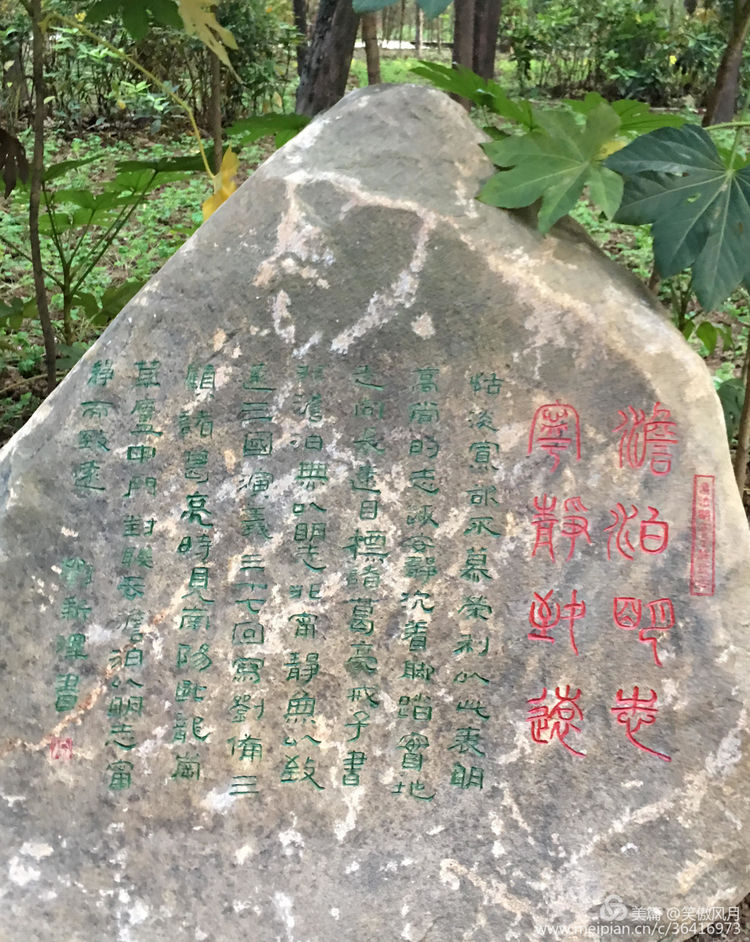 澹泊明志
寧靜致遠
恬淡寡欲不慕榮利以此表明
高尚的志趣安靜沉着脚踏實地
走向長遠目標諸葛亮戒子書
非澹泊無以明志非甯静無以致
遠三國演義三十七回寫劉備三
顧諸葛亮時見南陽卧龍崗
草廬中門對聯爲澹泊以明志甯
静而致遠
新 書
美篇 @笑傲风月
www.meipian.cn/c/36416973